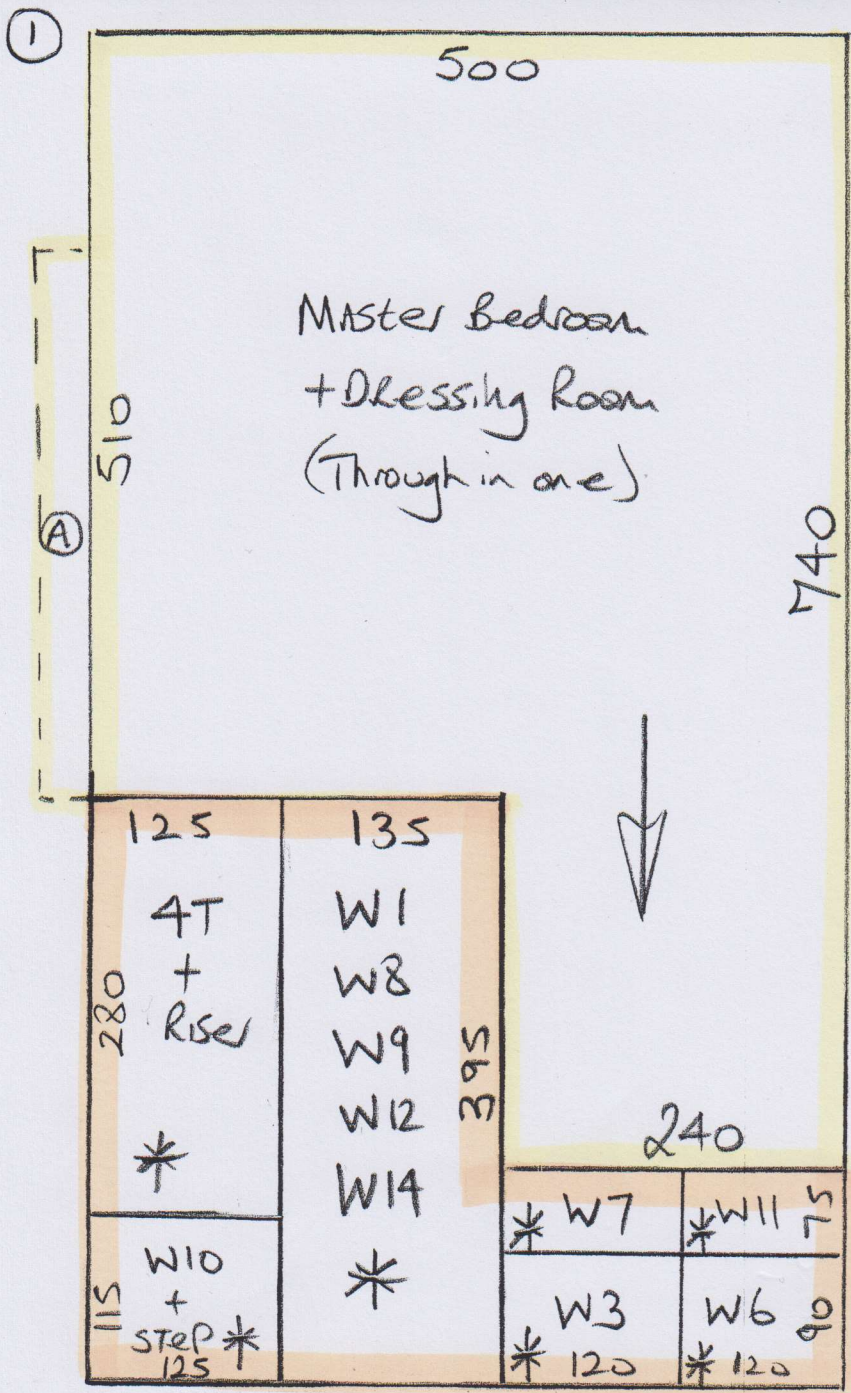 1
500
Master Bedroom
+ Dressing Room
(Through in one)
510
A
740
125
4T
+
Riser
280
*
135
W1
W8
W9
W12
W14
*
395
240
W10
+
Step *
125
115
* W7
* W11
75
W3
* 120
W6
* 120
90